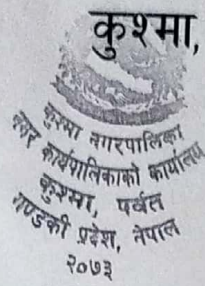 कुश्मा,
कुश्मा नगरपालिका
नगर कार्यपालिकाको कार्यालय
कुश्मा, पर्वत
गण्डकी प्रदेश, नेपाल
२०७३